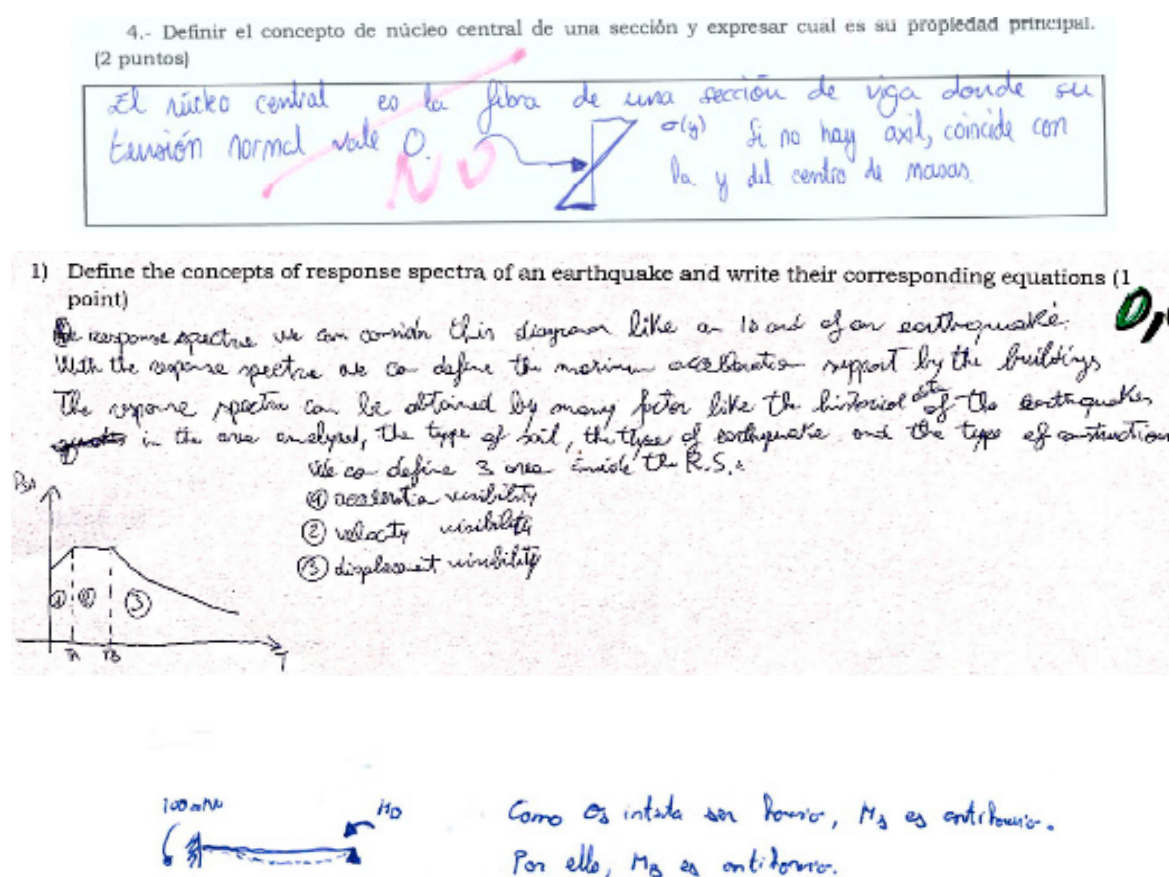 4.- Definir el concepto de núcleo central de una sección y expresar cual es su propiedad principal.
(2 puntos)
El núcleo central es la fibra de una sección de viga donde su
tensión normal vale 0. σ(y) Si no hay axil, coincide con
NO la y del centro de masas.
1) Define the concepts of response spectra of an earthquake and write their corresponding equations (1
point)
response spectra we can consider this diagram like an id card of an earthquake.
With the response spectra we can define the maximum acceleration support by the buildings
The response spectra can be obtained by many factor like the historical of the earthquakes
in the area analysed, the type of soil, the type of earthquake and the type of construction
We can define 3 area inside the R.S.:
① acceleratia
② velocity
③ displacement
① ② ③
TA TB T
100 mkN
Como intenta ser horario, es antihorario.
Por ello, es antihorario.